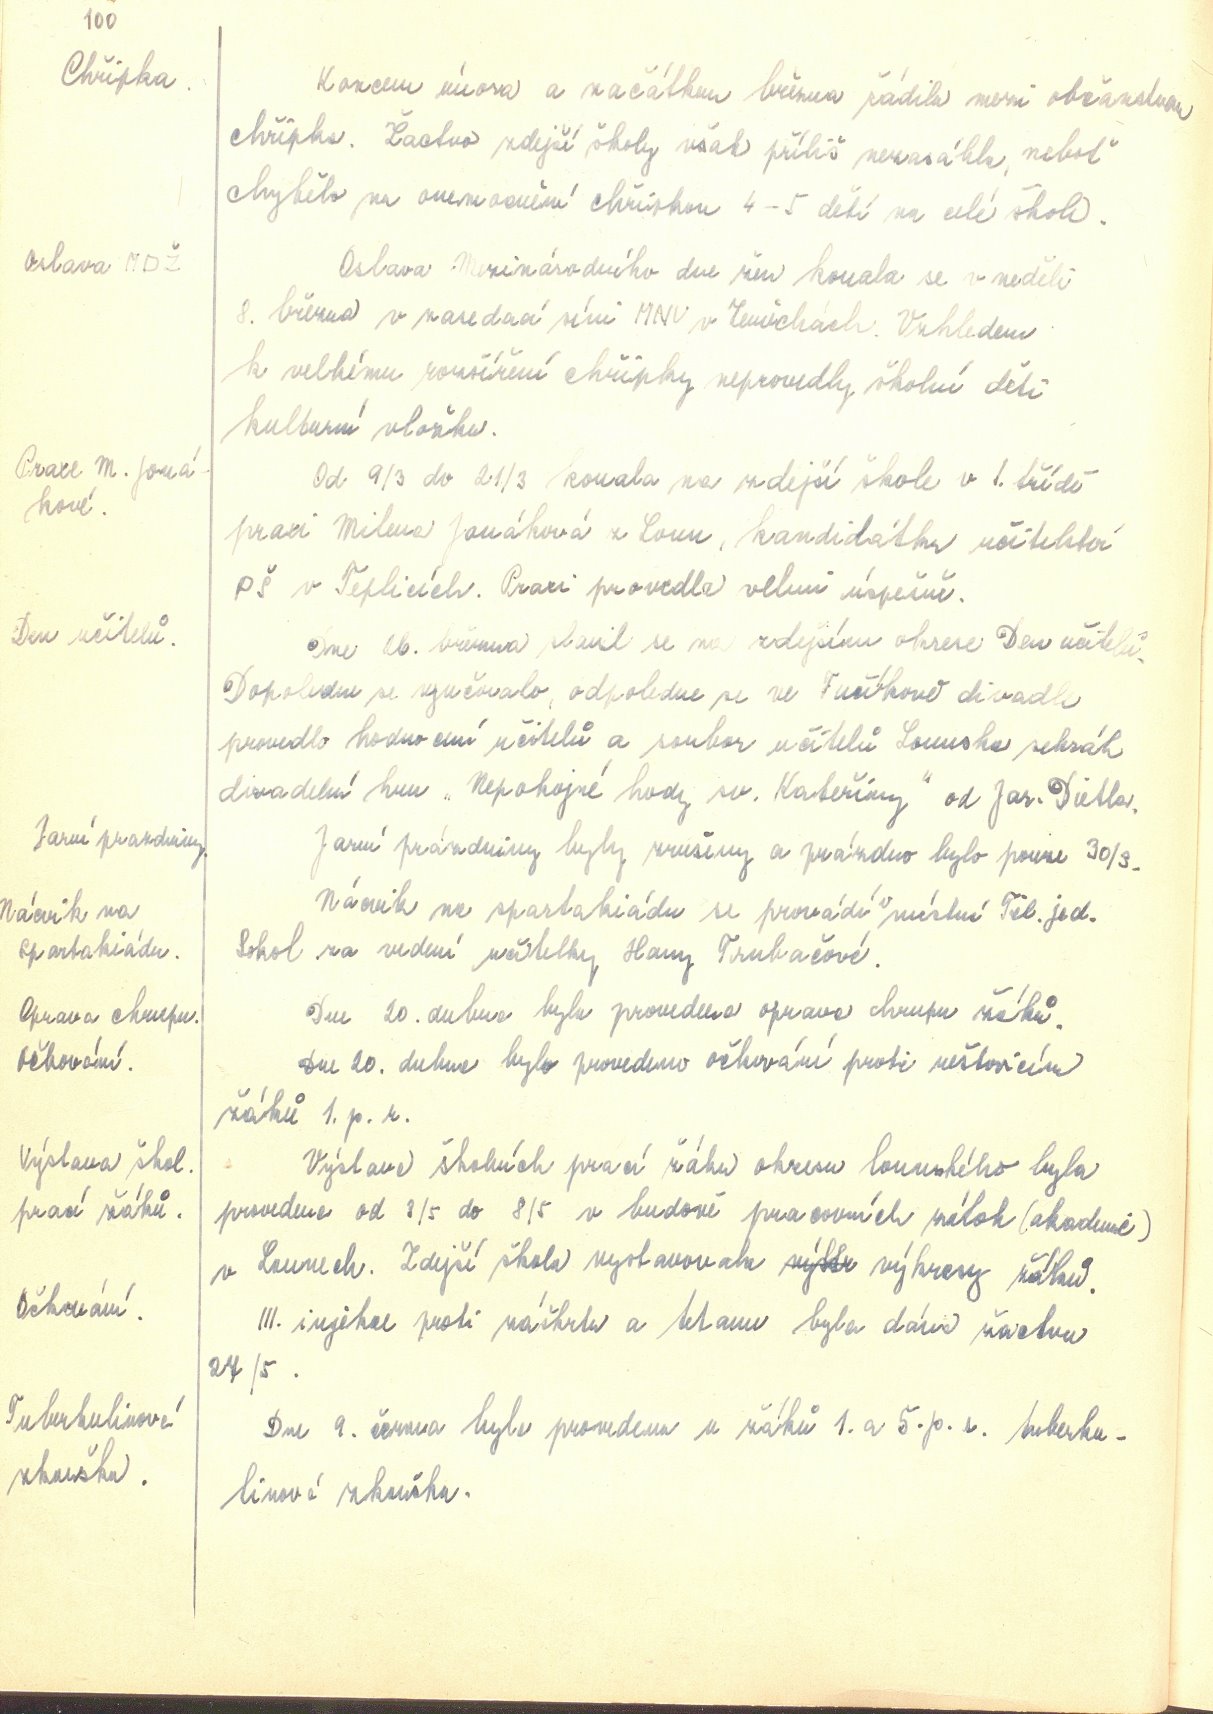 100
Chřipka.
Koncem února a začátkem března řádila mezi občanstvem
chřipka. Žactvo zdejší školy však příliš nezasáhla, neboť
chybělo na onemocnění chřipkou 4-5 dětí na celé škole.
Oslava MDŽ
Oslava Mezinárodního dne žen konala se v neděli
8. března v zasedací síni MNV v Zeměchách. Vzhledem
k velkému rozšíření chřipky neprovedly školní děti
kulturní vložku.
Praxe M. Joná-
kové.
Od 9/3 do 21/3 konala na zdejší škole v 1. třídě
praxi Milena Jonáková z Loun, kandidátka učitelství
PŠ v Teplicích. Praxi provedla velmi úspěšně.
Den učitelů.
Dne 26. března slavil se na zdejším okrese Den učitelů.
Dopoledne se vyučovalo, odpoledne se ve Fučíkově divadle
provedlo hodnocení učitelů a soubor učitelů Lounska sehrál
divadelní hru „Nepokojné hody sv. Kateřiny" od Jar. Dietla.
Jarní prázdniny.
Jarní prázdniny byly zrušeny a prázdno bylo pouze 30/3.
Nácvik na
spartakiádu.
Nácvik na spartakiádu se provádí v místní Těl. jed.
Sokol za vedení učitelky Hany Trubačové.
Oprava chrupu.
Dne 20. dubna byla provedena oprava chrupu žáků.
Očkování.
Dne 20. dubna bylo provedeno očkování proti neštovicím
žáků 1. p. r.
Výstava škol.
prací žáků.
Výstava školních prací žáků okresu lounského byla
provedena od 3/5 do 8/5 v budově pracovních záloh (akademie)
v Lounech. Zdejší škola vystavovala výkresy žáků.
Očkování.
III. injekce proti záškrtu a tetanu byla dána žactvu
27/5.
Tuberkulinová
zkouška.
Dne 9. června byla provedena u žáků 1. a 5. p. r. tuberku-
linová zkouška.